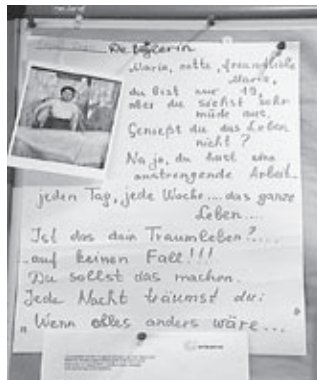 Die Büglerin
Maria, nette, freundliche
Maria,
du bist nur 19,
aber du siehst sehr
müde aus.
Genießt du das Leben
nicht?
Na ja, du hast eine
anstrengende Arbeit
jeden Tag, jede Woche... das ganze
Leben....
Ist das dein Traumleben?....
auf keinen Fall!!!
Du sollst das machen.
Jede Nacht träumst du:
„Wenn alles anders wäre...